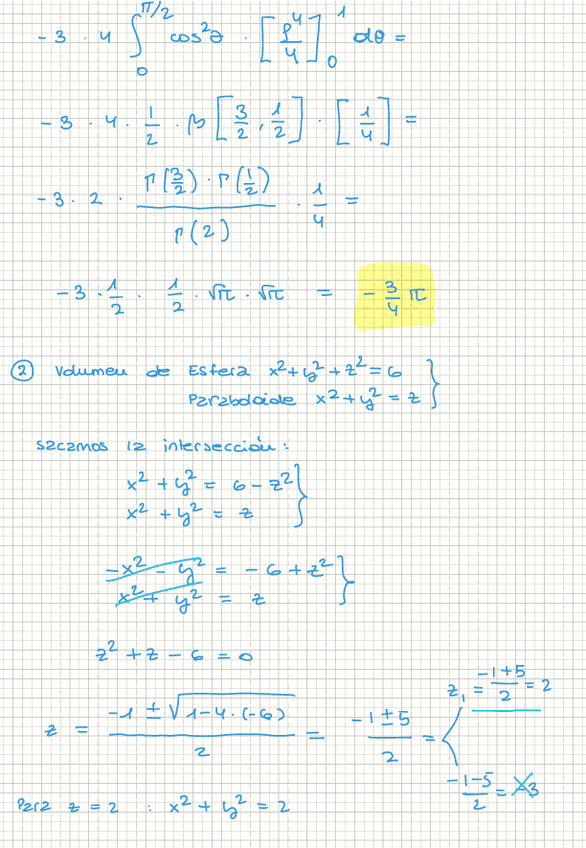 -3 · 4 ∫₀^{π/2} cos²θ · [ρ⁴/4]₀¹ dθ =
-3 · 4 · 1/2 · β [3/2, 1/2] · [1/4] =
-3 · 2 · (Γ(3/2) · Γ(1/2)) / Γ(2) · 1/4 =
-3 · 1/2 · 1/2 · √π · √π = -3/4 π
② Volumen de Esfera x² + y² + z² = 6 }
Paraboloide x² + y² = z
sacamos la intersección:
x² + y² = 6 - z² }
x² + y² = z
-x² - y² = -6 + z² }
x² + y² = z
z² + z - 6 = 0
z = (-1 ± √(1-4·(-6))) / 2 = (-1 ± 5) / 2 = < z₁ = (-1+5)/2 = 2
(-1-5)/2 = -3
Para z = 2 : x² + y² = 2